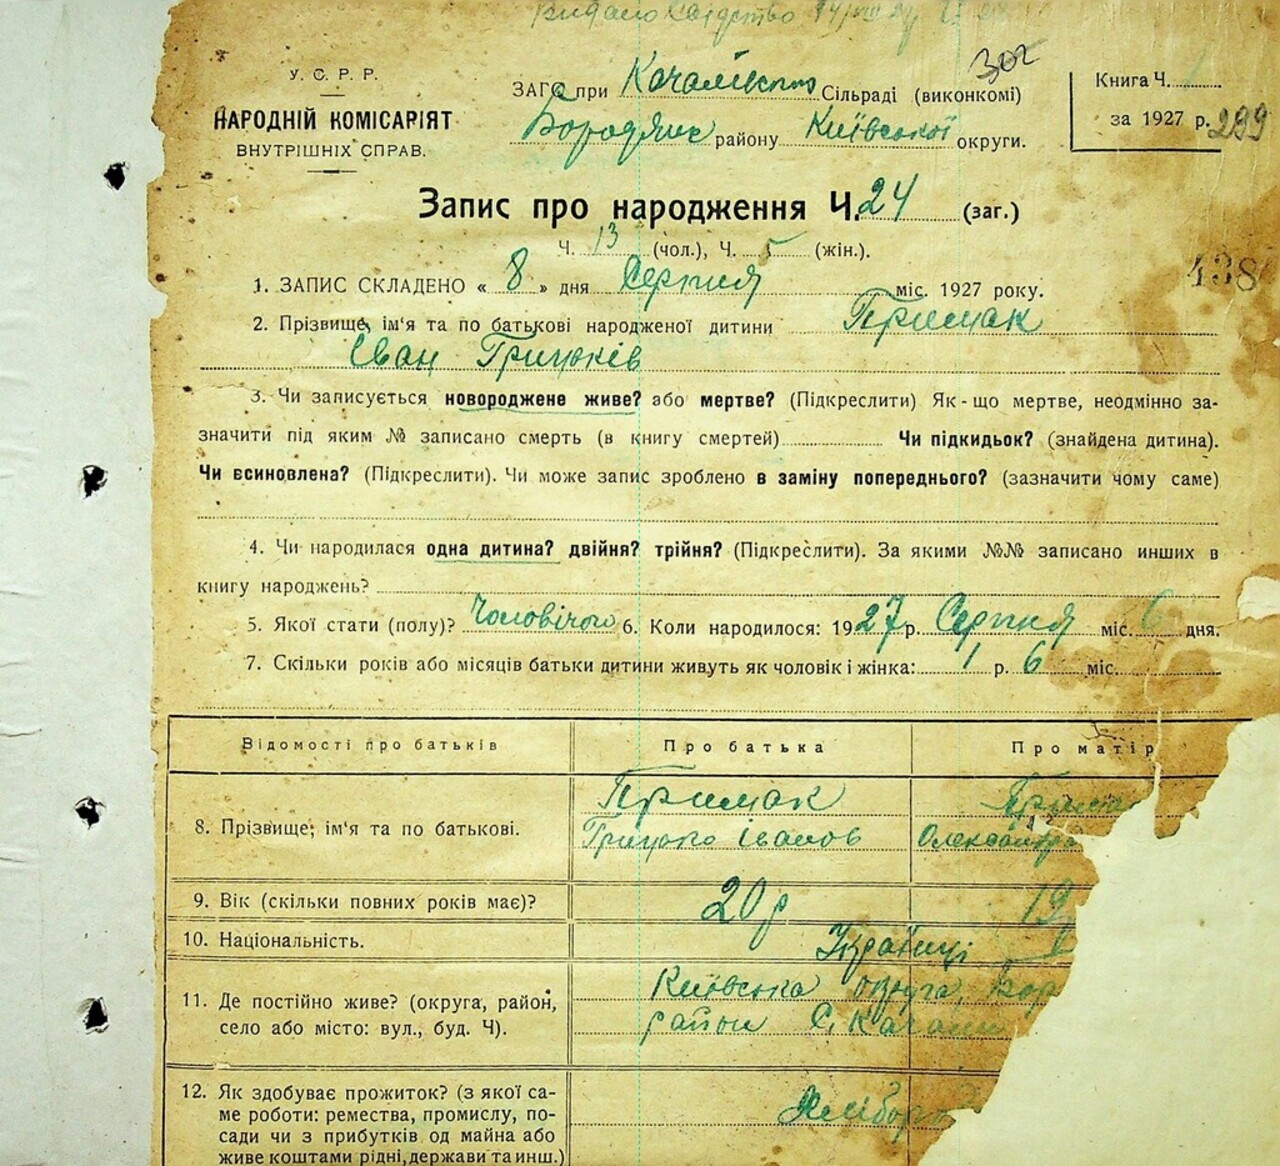 Видано
У. С. Р. Р.
НАРОДНІЙ КОМІСАРІЯТ
ВНУТРІШНІХ СПРАВ.
302
ЗАГС при Качалівською Сільраді (виконкомі)
Бородянс району Київської округи.
Книга Ч. 1
за 1927 р.
299
Запис про народження Ч. 24 (заг.)
Ч. 13 (чол.), Ч. 5 (жін.).
438
1. ЗАПИС СКЛАДЕНО « 8 » дня Серпня міс. 1927 року.
2. Прізвище, ім'я та по батькові народженої дитини Примак
Іван Грицьків
3. Чи записується новороджене живе? або мертве? (Підкреслити) Як-що мертве, неодмінно за-
значити під яким № записано смерть (в книгу смертей) Чи підкидьок? (знайдена дитина).
Чи всиновлена? (Підкреслити). Чи може запис зроблено в заміну попереднього? (зазначити чому саме)
4. Чи народилася одна дитина? двійня? трійня? (Підкреслити). За якими №№ записано инших в
книгу народжень?
5. Якої стати (полу)? Чоловічого 6. Коли народилося: 1927 р. Серпня міс. 6 дня.
7. Скільки років або місяців батьки дитини живуть як чоловік і жінка: 1 р. 6 міс.
Відомості про батьків Про батька Про матір
8. Прізвище, ім'я та по батькові.
Примак
Грицько Іванов
Прима
Олександра
9. Вік (скільки повних років має)? 20 р 19
10. Національність. Українці
11. Де постійно живе? (округа, район,
село або місто: вул., буд. Ч).
Київська округа, Бор
район С. Качали
12. Як здобуває прожиток? (з якої са-
ме роботи: ремества, промислу, по-
сади чи з прибутків од майна або
живе коштами рідні, держави та инш.)
Хлібороб